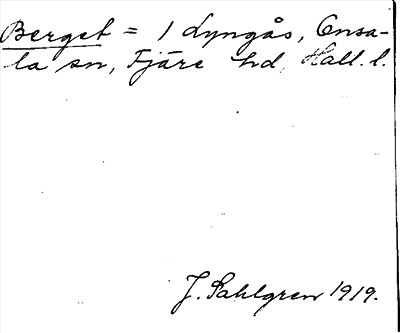 Berget = 1 Lyngås, Onsa-
la sn, Fjäre hd, Hall. l.
J. Sahlgren 1919.